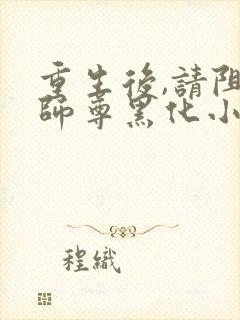 重生後,請阻
師尊黑化小
程織